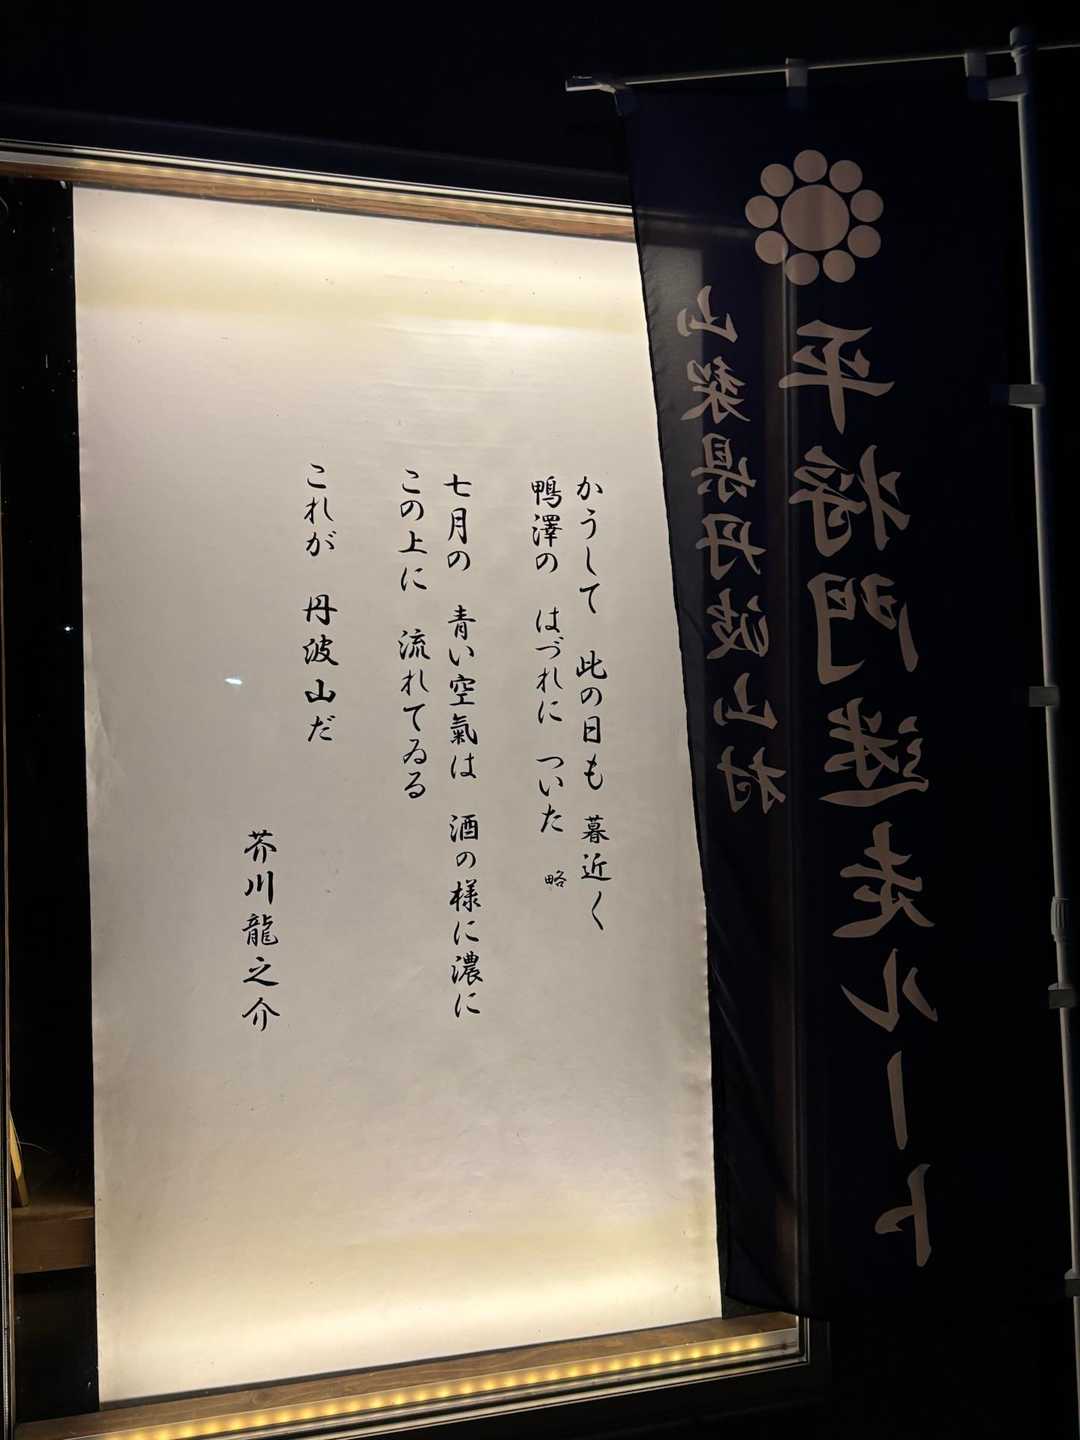 かうして 此の日も 暮近く
鴨澤の はづれに ついた 略
七月の 青い空氣は 酒の様に濃に
この上に 流れてゐる
これが 丹波山だ
芥川龍之介
平将門迷走ルート
山梨県丹波山村